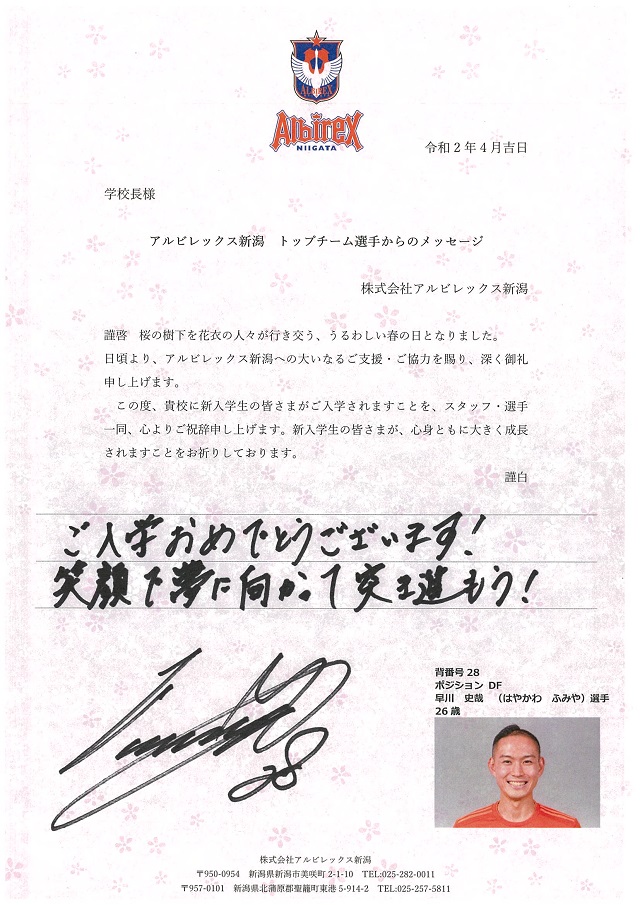 ALBIREX
AlbireX
NIIGATA
令和２年４月吉日
学校長様
アルビレックス新潟　トップチーム選手からのメッセージ
株式会社アルビレックス新潟
謹啓　桜の樹下を花衣の人々が行き交う、うるわしい春の日となりました。
日頃より、アルビレックス新潟への大いなるご支援・ご協力を賜り、深く御礼
申し上げます。
　この度、貴校に新入学生の皆さまがご入学されますことを、スタッフ・選手
一同、心よりご祝辞申し上げます。新入学生の皆さまが、心身ともに大きく成長
されますことをお祈りしております。
謹白
ご入学おめでとうございます！
笑顔で夢に向かって突き進もう！
28
背番号 28
ポジション DF
早川　史哉　（はやかわ　ふみや）選手
26 歳
株式会社アルビレックス新潟
〒950-0954　新潟県新潟市美咲町 2-1-10　TEL:025-282-0011
〒957-0101　新潟県北蒲原郡聖籠町東港 5-914-2　TEL:025-257-5811